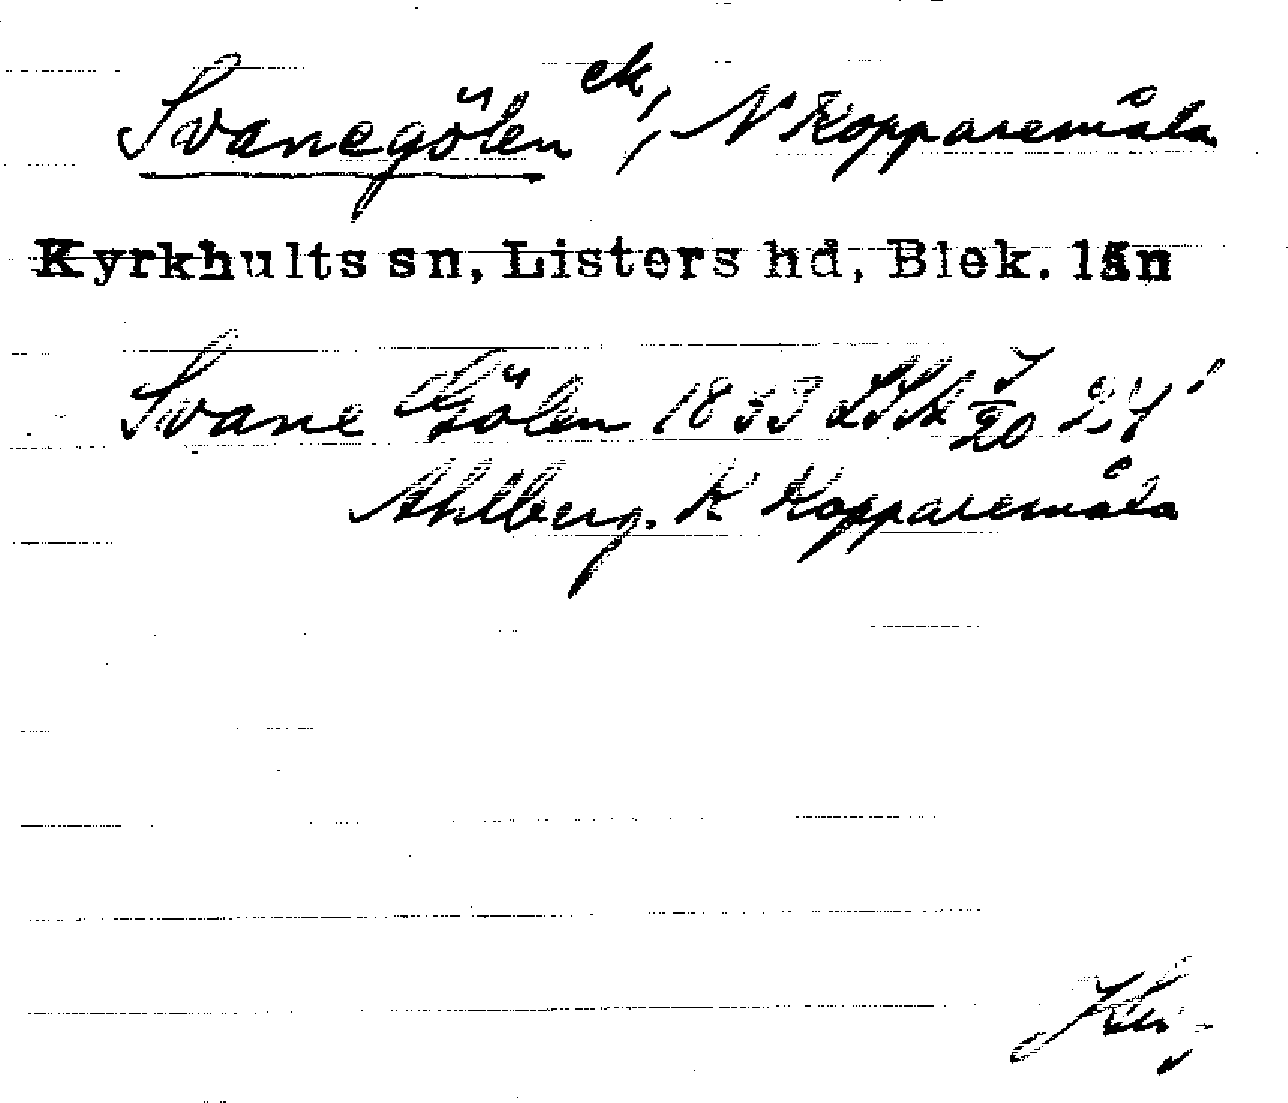 Svanegölen ek, N Kopparemåla
Kyrkhults sn, Listers hd, Blek. län
Svane Gölen 1833 LSA
Ahlberg. K Kopparemåla